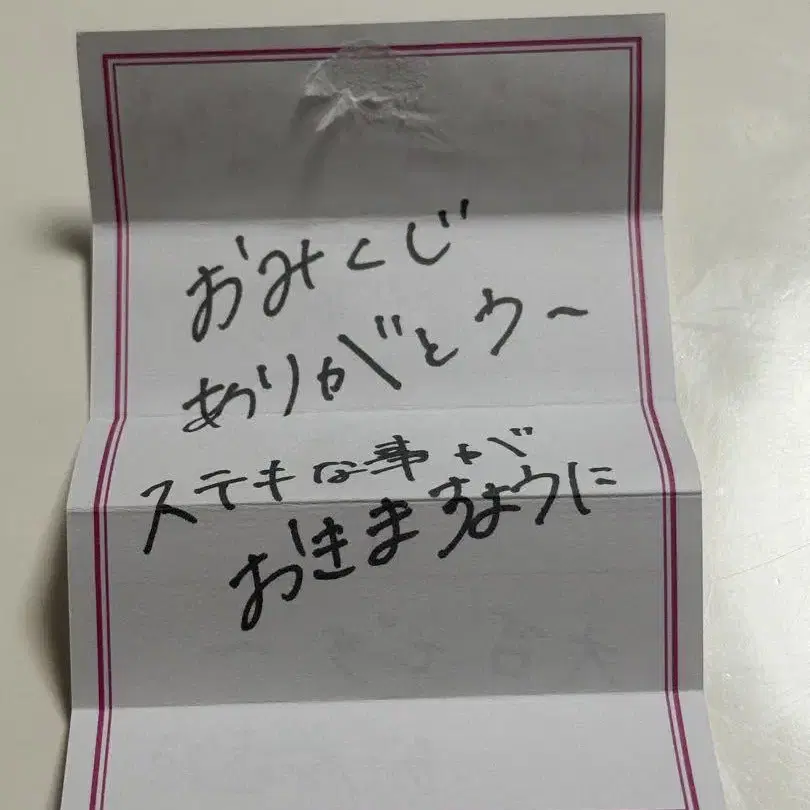 おみくじ
ありがとう〜
ステキな事が
おきますように